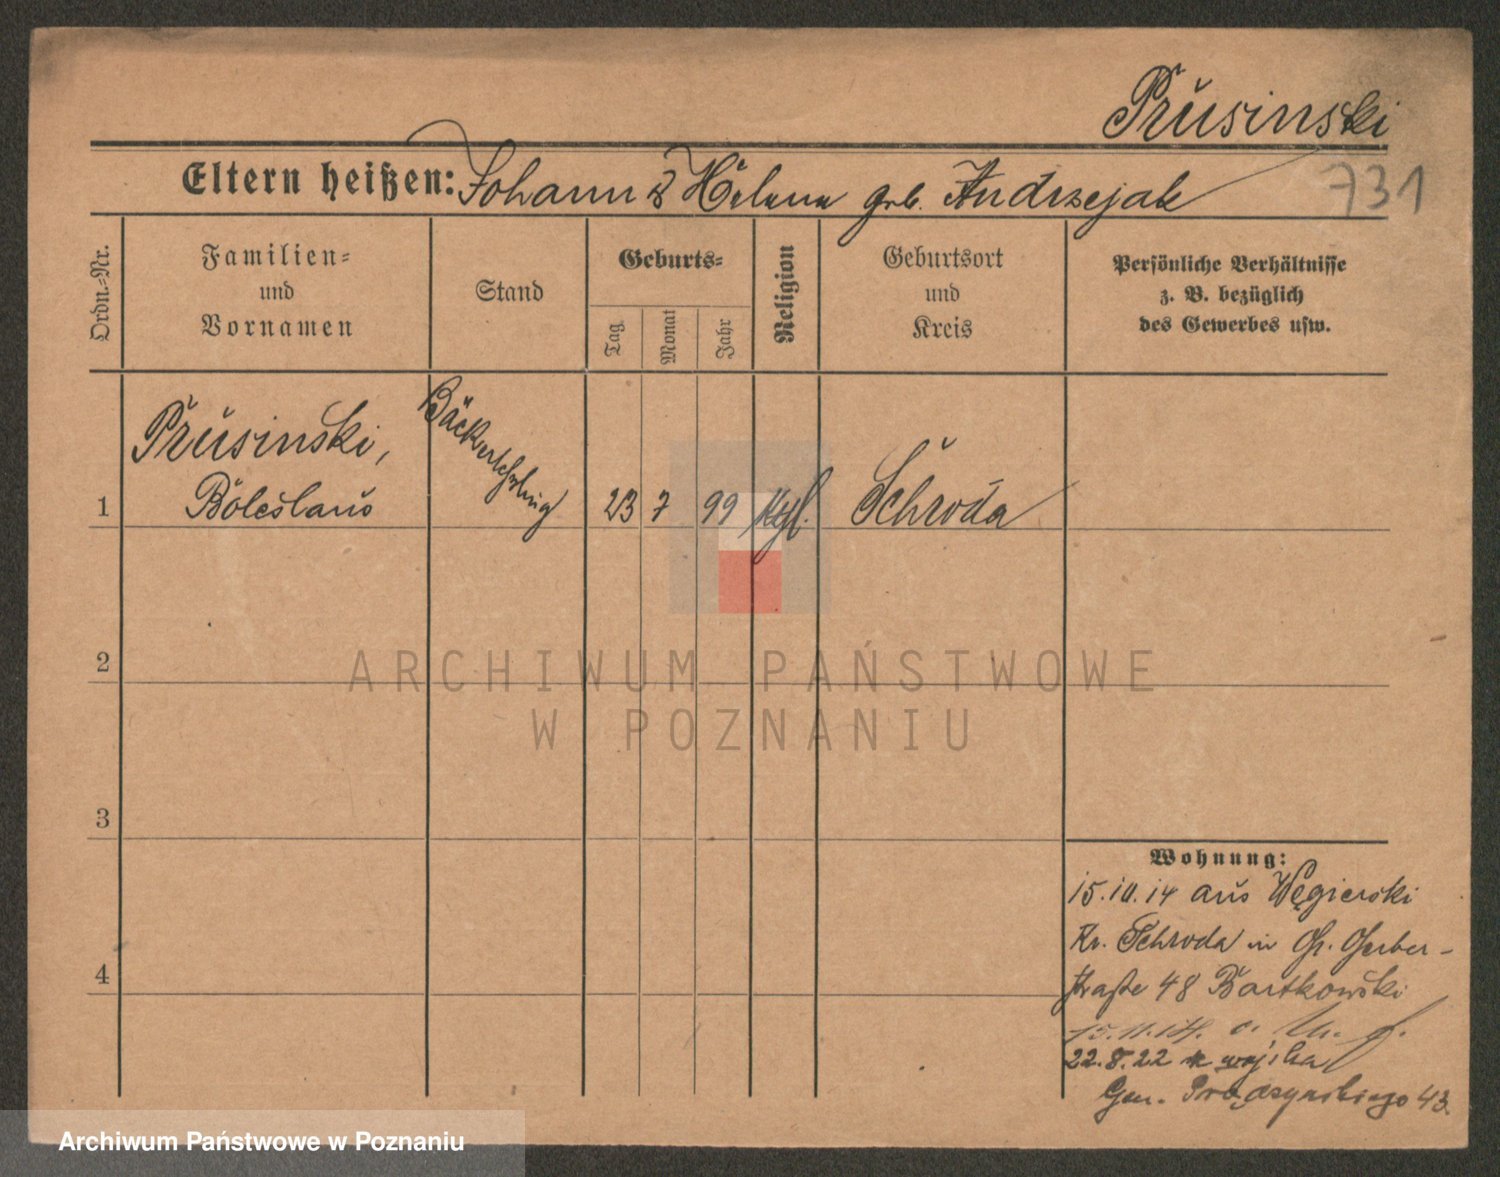 Prusinski
731
Eltern heißen: Johann & Helena geb. Andrzejak
Ordn.-Nr.
Familien-
und
Vornamen
Stand
Geburts-
Tag
Monat
Jahr
Religion
Geburtsort
und
Kreis
Persönliche Verhältnisse
z. B. bezüglich
des Gewerbes usw.
1
Prusinski,
Boleslaus
Bäckerlehrling
23 7 99 ktl.
Schroda
2
3
4
Wohnung:
15.10.14 aus Węgierski
Kr. Schroda in Gr. Gerber-
straße 48 Bartkowski
15.11.14.
22.8.22 z wojska
Gen. Prądzyńskiego 43.
ARCHIWUM PAŃSTWOWE
W POZNANIU
Archiwum Państwowe w Poznaniu